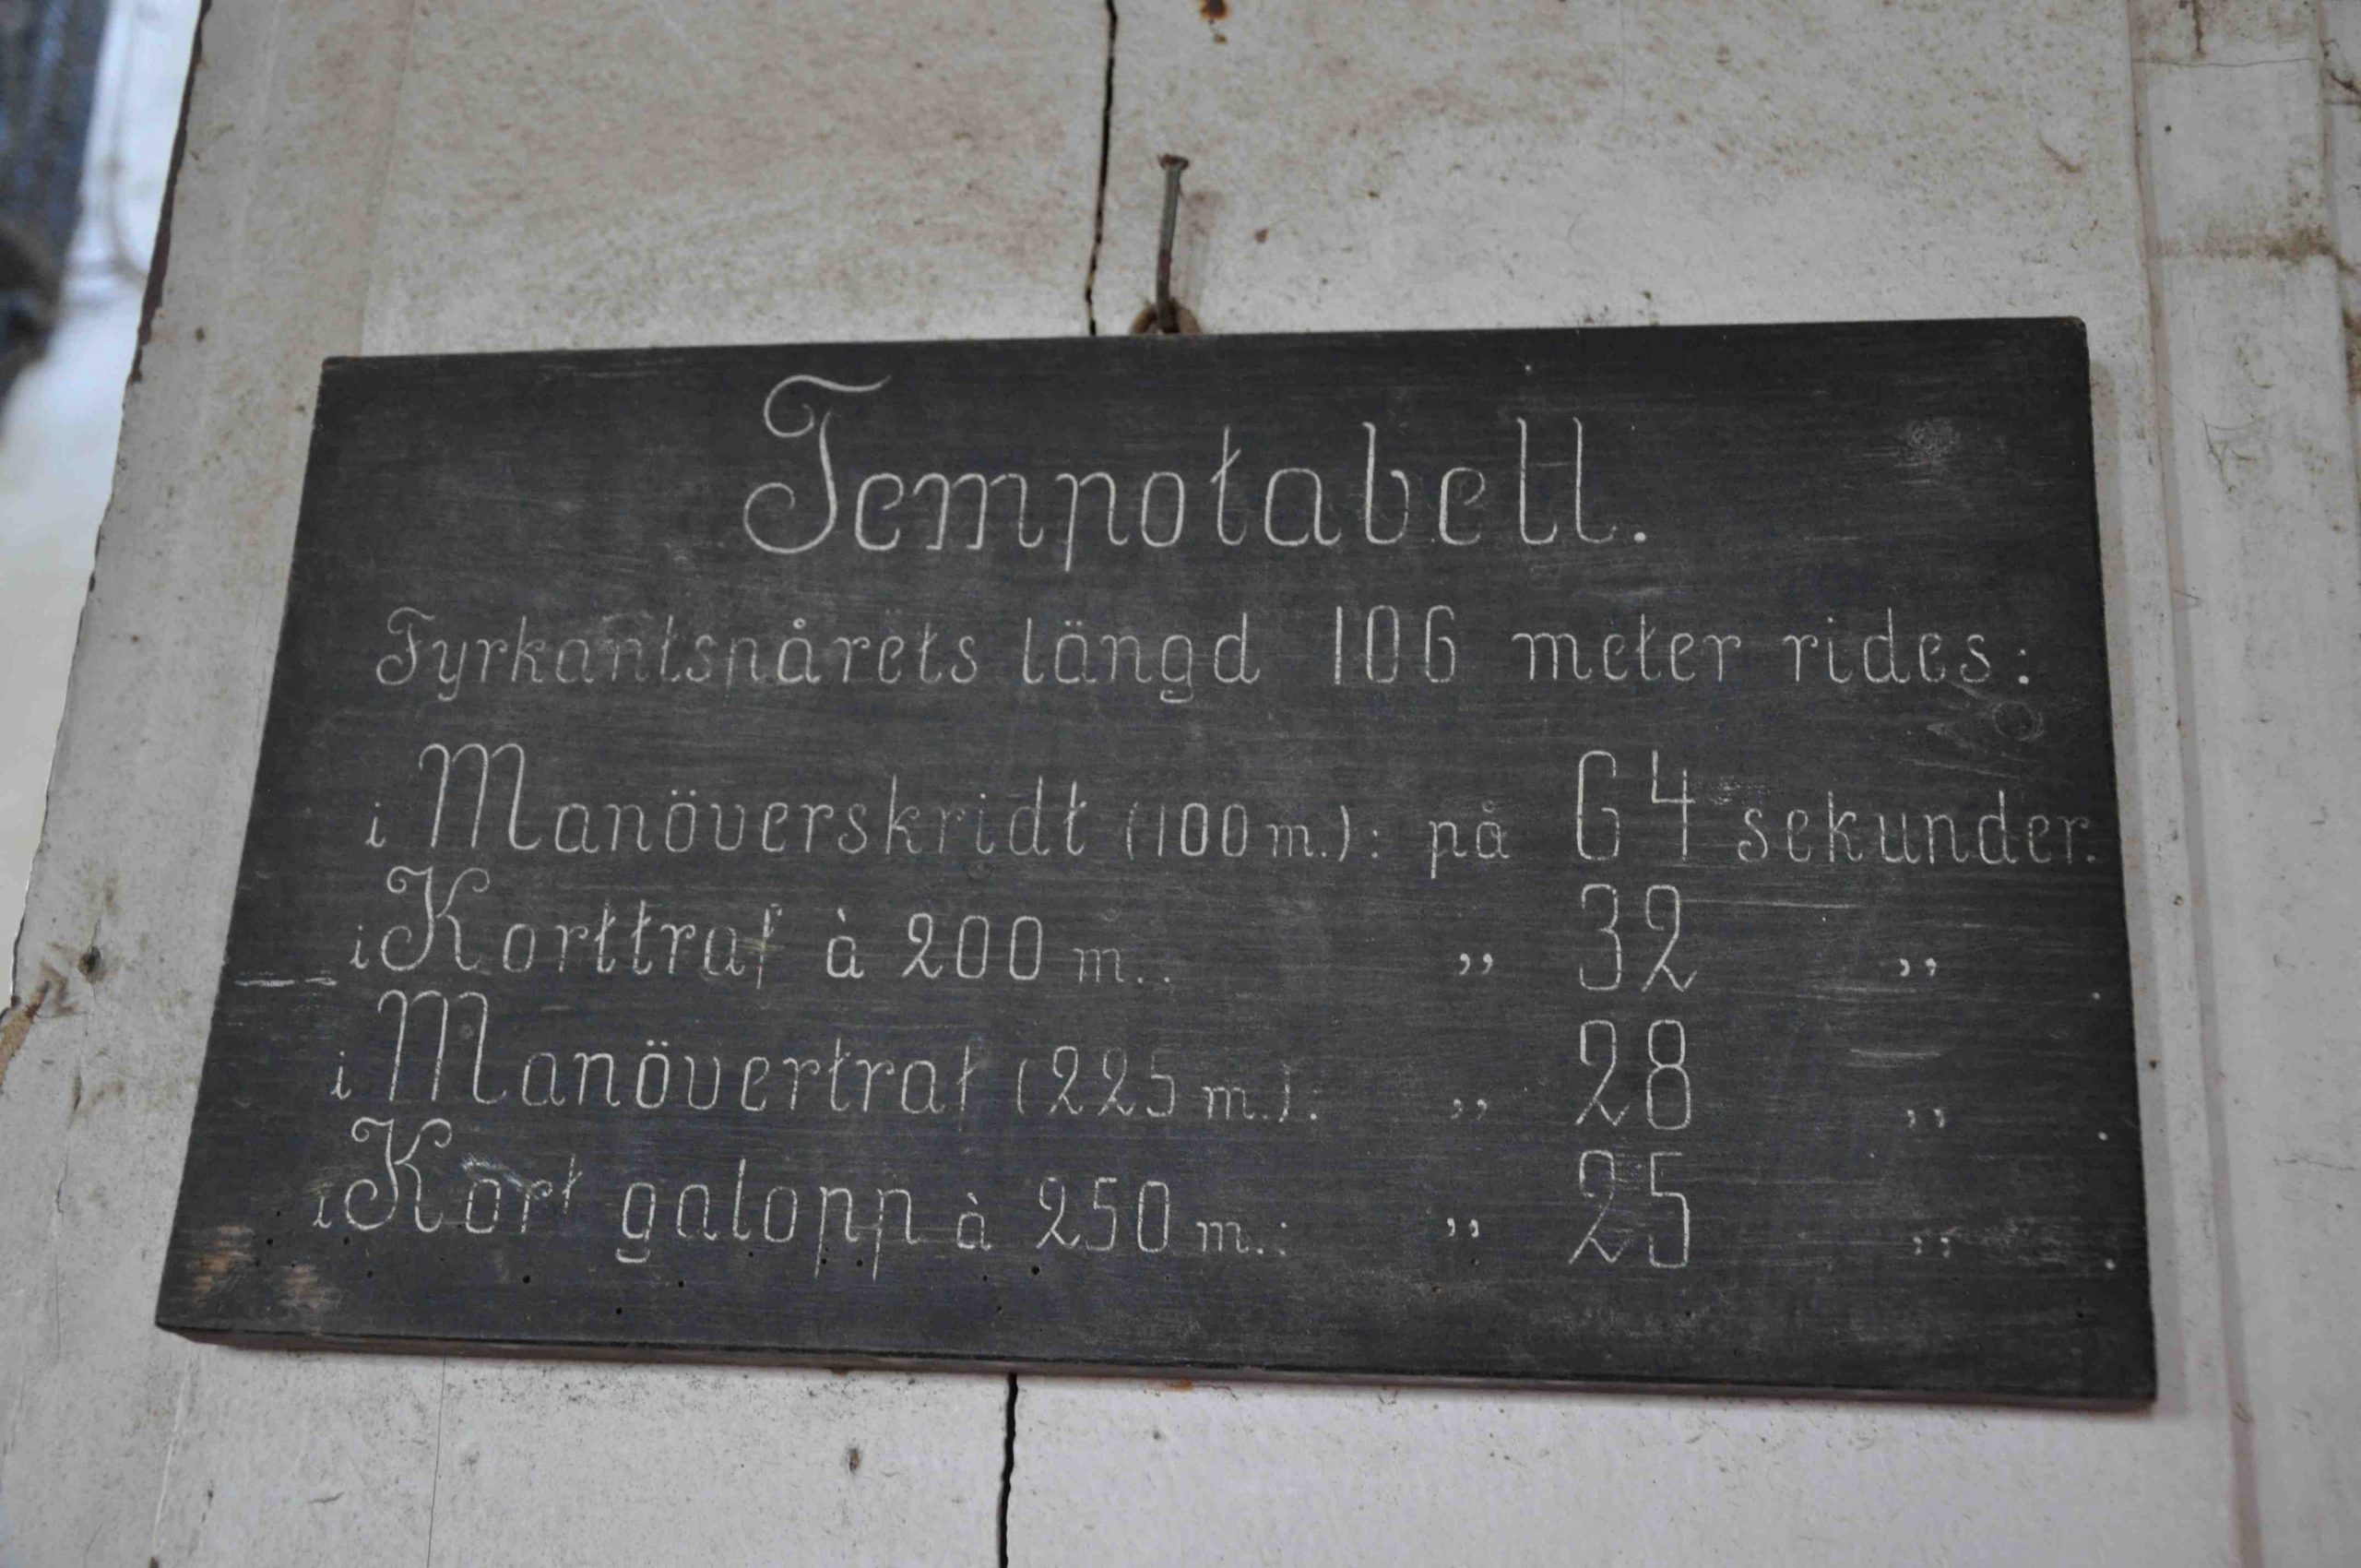 Tempotabell.
Fyrkantspårets längd 106 meter rides:
i Manöverskridt (100 m.): på 64 sekunder.
i Korttraf à 200 m.. „ 32 „
i Manövertraf (225 m.): „ 28 „
i Kort galopp à 250 m.: „ 25 „